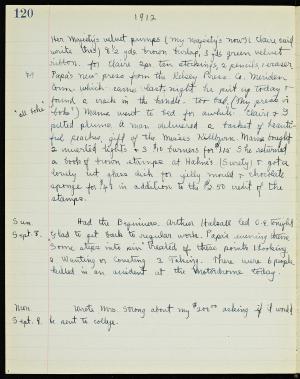 120
1912
Her Majesty's velvet pumps (my majesty's now!) Claire said
write this) 8½ yds. brown burlap, 3 yds green velvet
ribbon. for Claire 2 pr. ten stockings, 2 pencils, eraser,
Papa's "new" press from the Kelsey Press Co. Meriden
Conn. which came last night he put up today &
found a crack in the handle. Too bad. (My press is
broke) Mama went to bed for awhile. Claire & I
pitted plums. A man delivered a basket of beauti-
ful peaches gift of the Misses Kilburn. Mama bought
2 inverted lights & 3 burners for She returned
a book of brown stamps at Hahne's (Surety) & got a
lovely cut glass dish for jelly mould & chocolate
sponge for in addition to the $2.50 credit of the
stamps.
Sun. Had the Beginners. Arthur Halsall led C.E. tonight
Sept. 8. Glad to get back to regular work. Papa's evening theme
"Some steps into sin" treated of these points 1 Looking
2 Wanting or Coveting 3 Taking. There were 6 people
killed in an accident at the Motordrome today.
Mon. Wrote Mrs. Strong about my $200.00 asking if I would
Sept. 9. be sent to college.